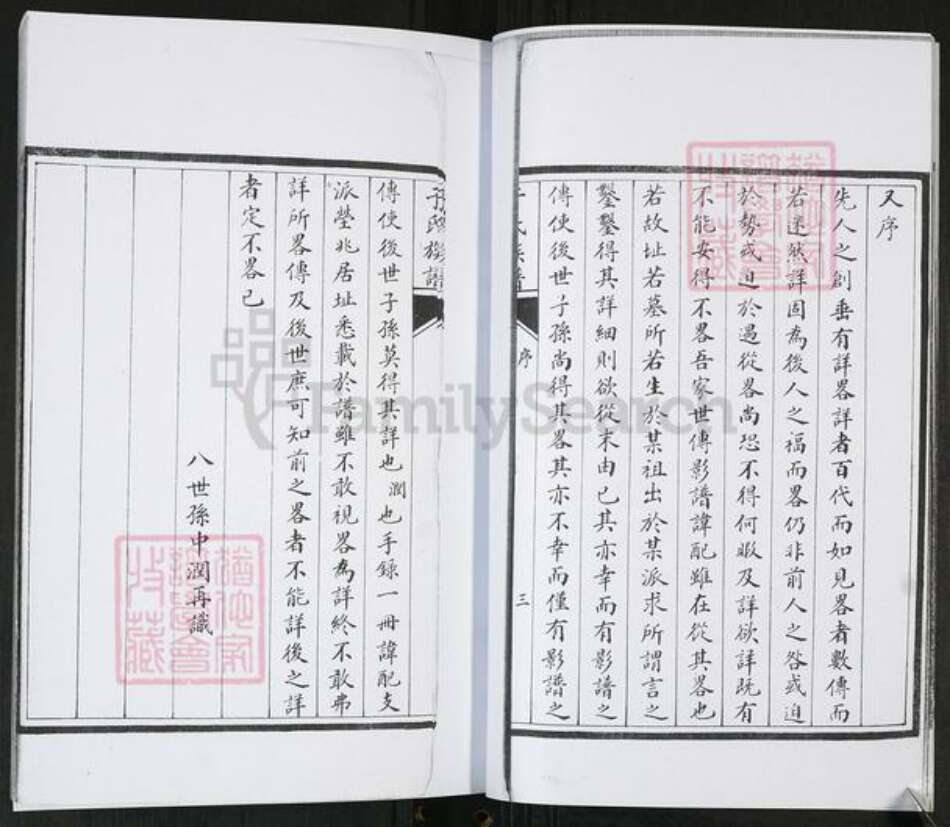 又序
先人之創垂有詳畧詳者百代而如見畧者數傳而
若迷然詳固為後人之福而畧仍非前人之咎或迫
於勢或迫於過從畧尚恐不得何暇及詳欲詳既有
不能安得不畧吾家世傳影譜諱配雖在從其畧也
若故址若墓所若生於某祖出於某派求所謂言之
鑿鑿得其詳細則欲從末由已其亦幸而有影譜之
傳使後世子孫尚得其畧其亦不幸而僅有影譜之
序
三
傳使後世子孫莫得其詳也潤也手錄一冊諱配支
派塋兆居址悉載於譜雖不敢視畧為詳終不敢弗
詳所畧傳及後世庶可知前之畧者不能詳後之詳
者定不畧已
八世孫中潤再識
FamilySearch